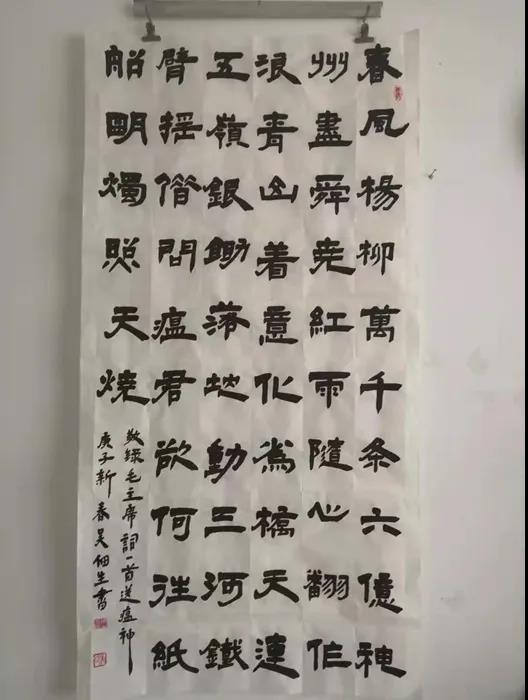 春風楊柳萬千条六億神
州盡舜尭紅雨隨心翻作
浪青山着意化為橋天連
五嶺銀鋤落地動三河鐵
臂摇借問瘟君欲何往紙
船明燭照天燒
敬録毛主席詞一首送瘟神
庚子新春吴生書